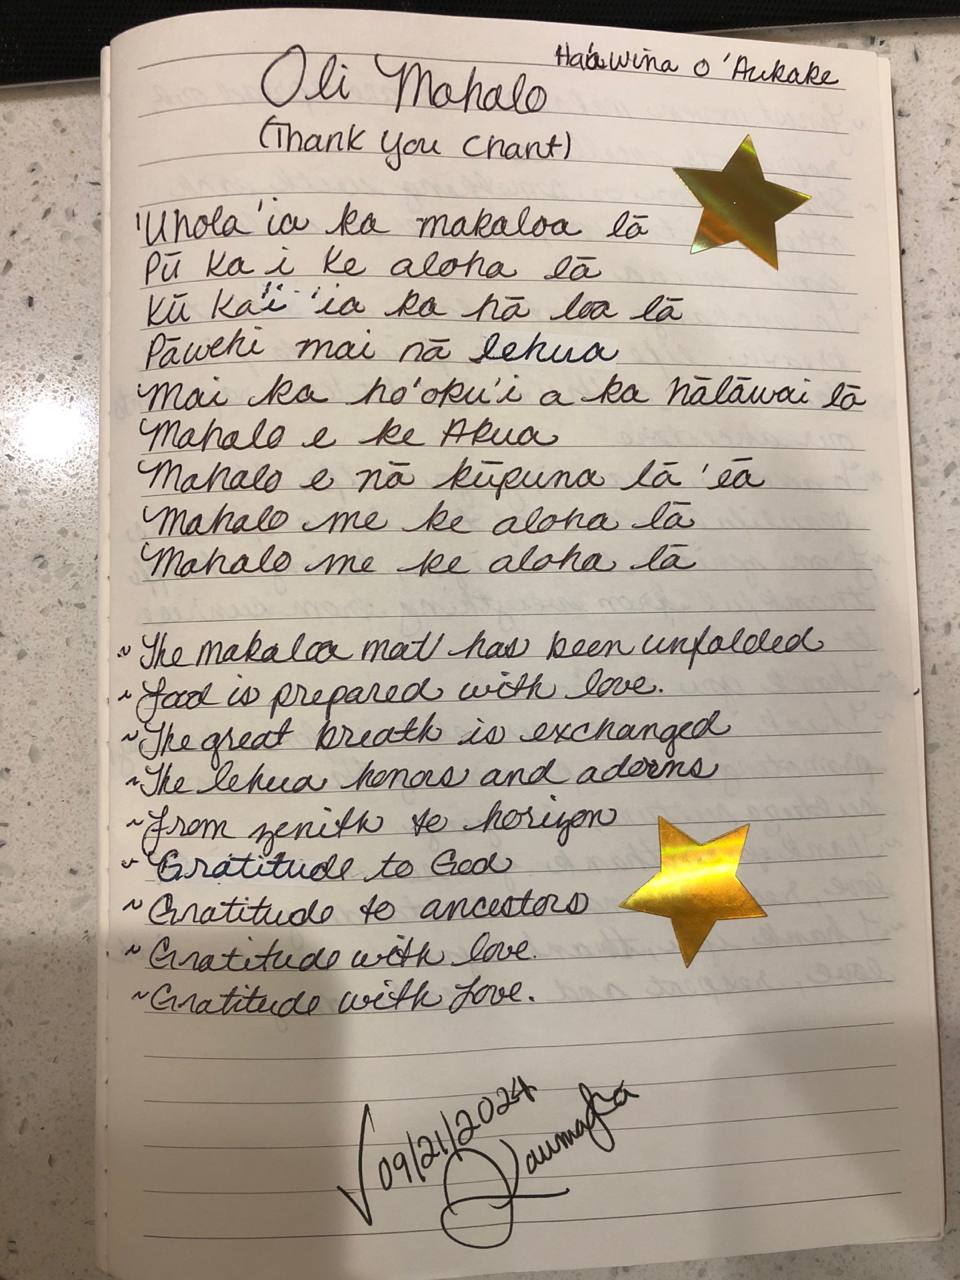 Ha'awina o 'Aukake
Oli Mahalo
(Thank you chant)
'Uhola 'ia ka makaloa lā
Pū ka i ke aloha lā
Kū ka'i 'ia ka hā loa lā
Pāwehi mai nā lehua
Mai ka ho'oku'i a ka hālāwai lā
Mahalo e ke Akua
Mahalo e nā kūpuna lā 'eā
Mahalo me ke aloha lā
Mahalo me ke aloha lā
~The makaloa mat has been unfolded
~Food is prepared with love.
~The great breath is exchanged
~The lehua honors and adorns
~From zenith to horizon
~Gratitude to God
~Gratitude to ancestors
~Gratitude with love.
~Gratitude with Love.
√09/21/2024